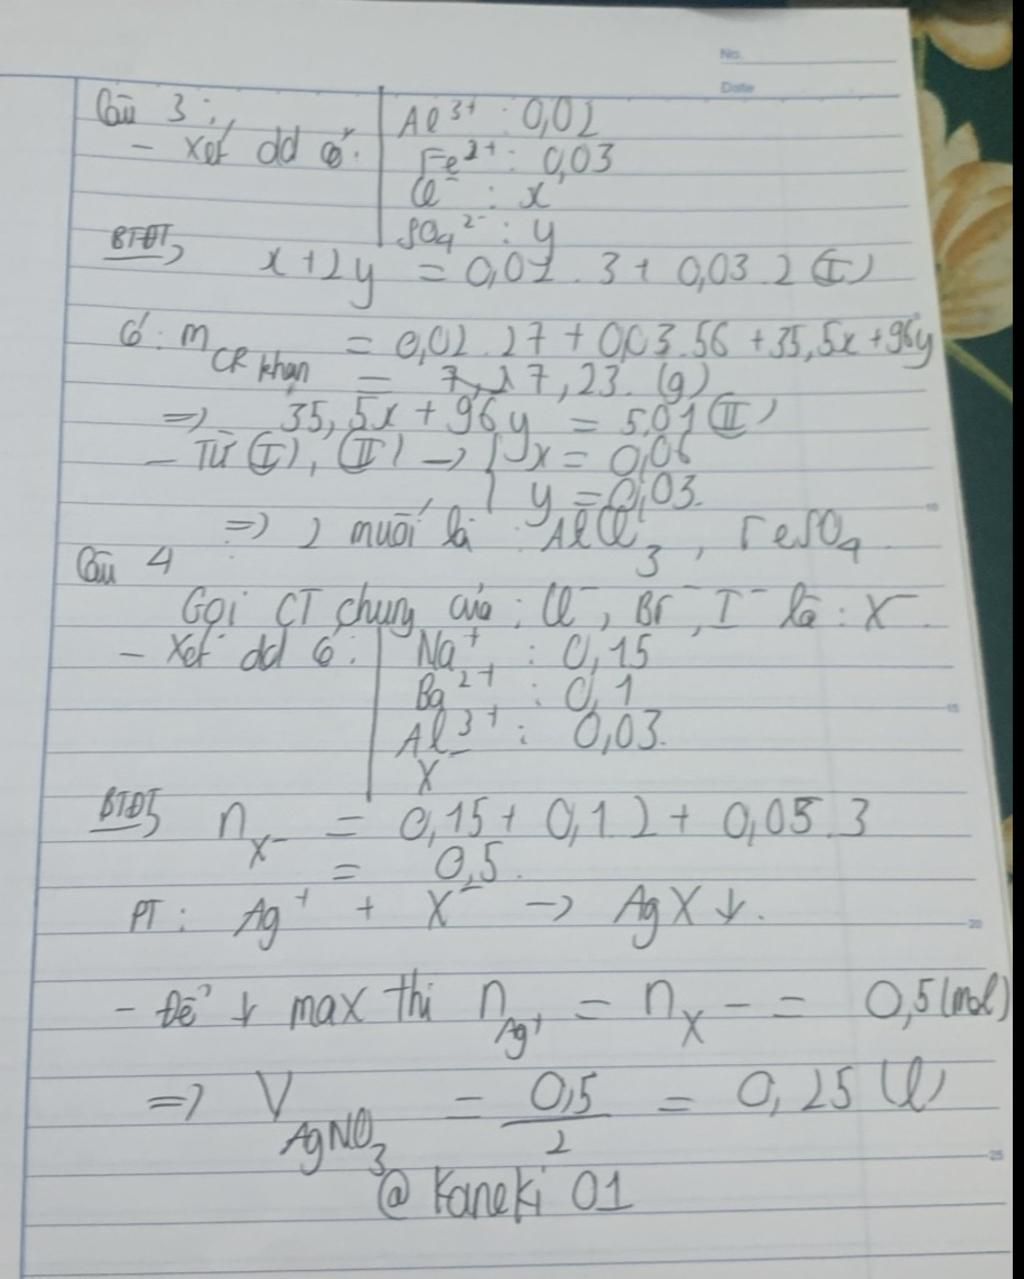 No.
Date
Câu 3:
- Xét dd có:
Al³⁺ : 0,02
Fe²⁺ : 0,03
Cl⁻ : x
SO₄²⁻ : y
BTĐT,
x + 2y = 0,02 . 3 + 0,03 . 2 (I)
Có: m CR khan = 0,02 . 27 + 0,03 . 56 + 35,5x + 96y
= 7,23 (g)
=> 35,5x + 96y = 5,01 (II)
- Từ (I), (II) → { x = 0,06
{ y = 0,03.
=> 2 muối là : AlCl₃, FeSO₄
Câu 4
Gọi CT chung của : Cl⁻, Br⁻, I⁻ là : X⁻.
- Xét dd có:
Na⁺ : 0,15
Ba²⁺ : 0,1
Al³⁺ : 0,03.
X⁻
BTĐT,
n X⁻ = 0,15 + 0,1.2 + 0,05.3
= 0,5.
PT : Ag⁺ + X⁻ → AgX ↓.
- Để ↓ max thì n Ag⁺ = n X⁻ = 0,5 (mol)
=> V AgNO₃ = 0,5 / 2 = 0,25 (l)
@ Kaneki 01
10
15
20
25